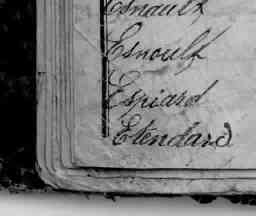 Esnault
Esnoulf
Espiard
Etendard